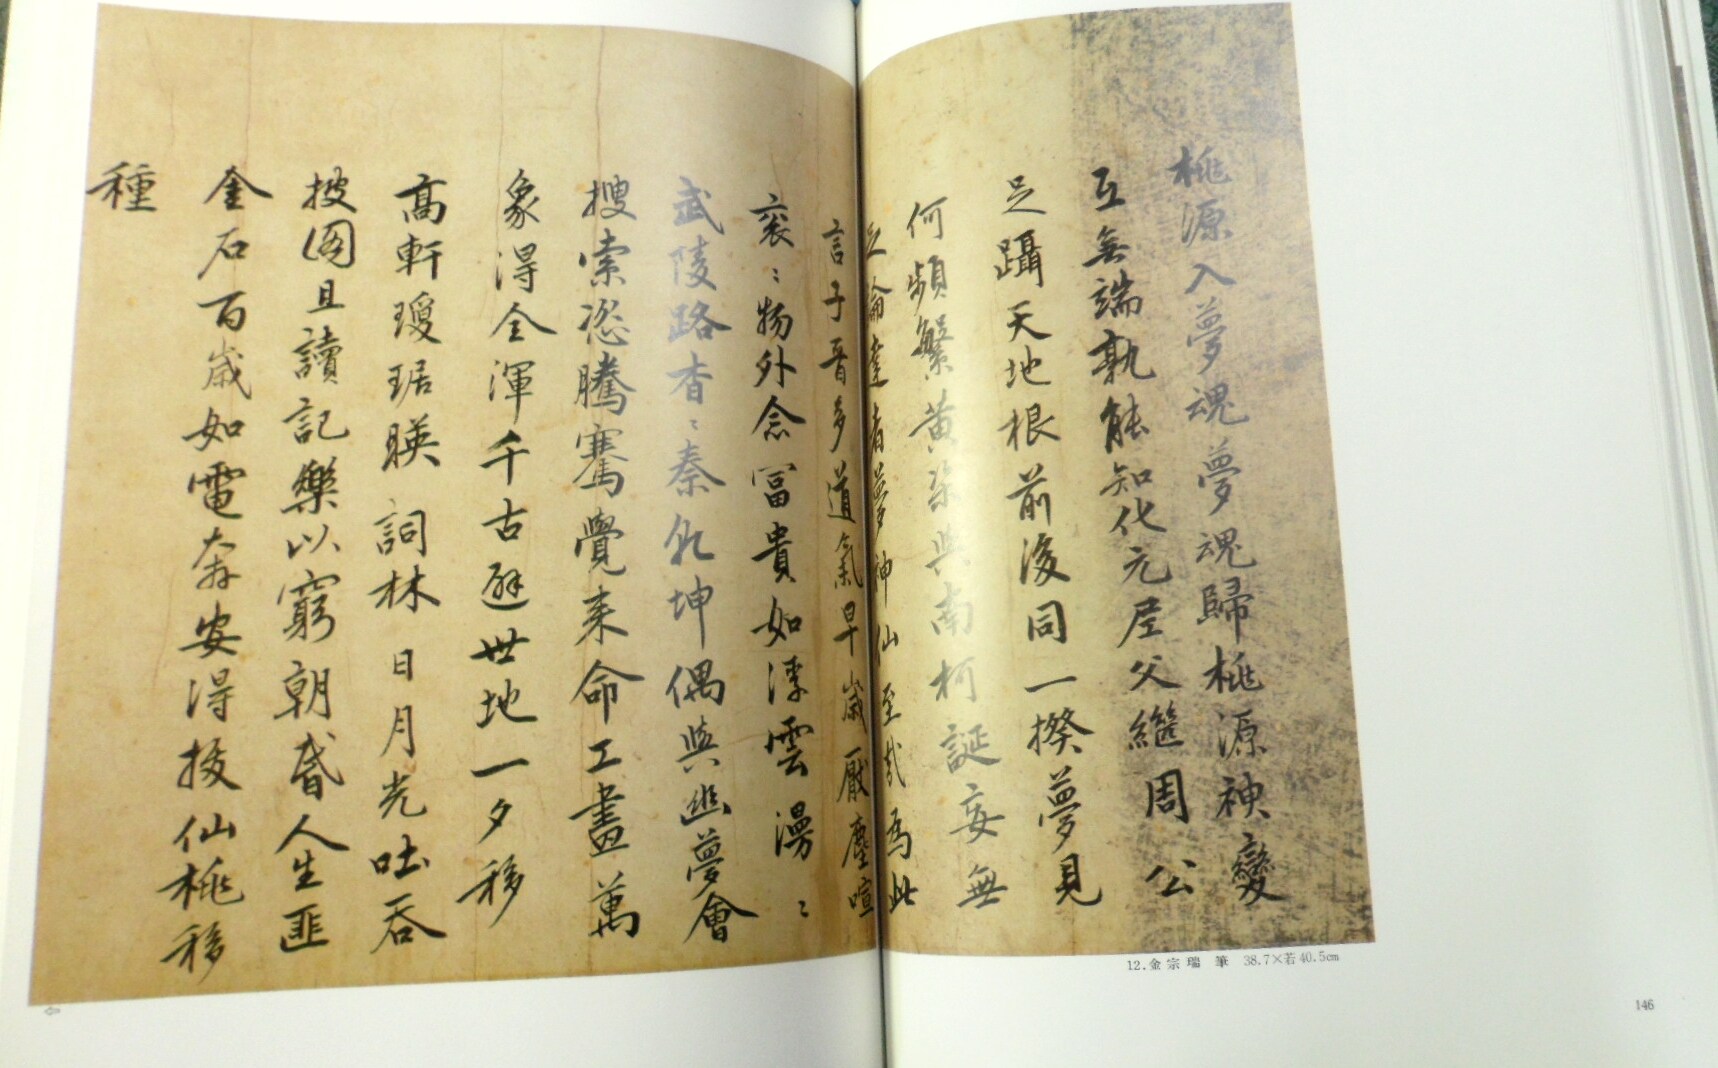 桃源入夢魂夢魂歸桃源神變
互無端孰能知化元尼父繼周公
足躡天地根前後同一揆夢見
何頻繁黃粱與南柯誕妄無
足論達者夢神仙至哉為此
言子晋多道氣早歲厭塵喧
衮〻物外念冨貴如浮雲漫〻
武陵路杳〻秦乾坤偶與幽夢會
搜索恣騰騫覺來命工畫萬
象得全渾千古避世地一夕移
高軒瓊琚暎詞林日月光吐吞
披图且讀記樂以窮朝昏人生匪
金石百歲如電奔安得授仙桃移
種
12.金宗瑞 筆 38.7×若40.5cm
146